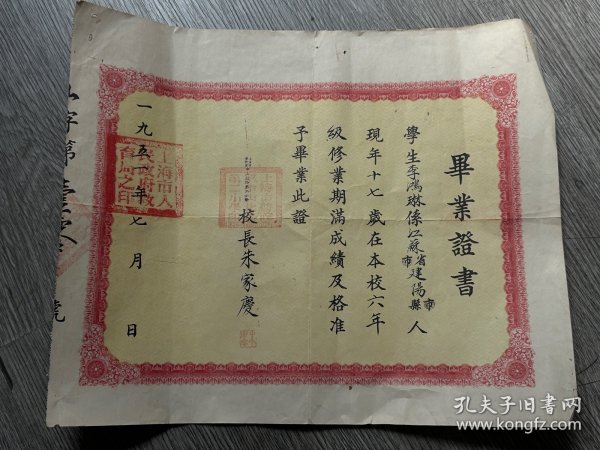 畢業證書
學生李鴻琳係江蘇省市建陽縣市人
現年十七歲在本校六年
級修業期滿成績及格准
予畢業此證
校長朱家慶
一九五 年七月 日
上海市人民政府教育局之印
字第 號
孔夫子旧书网
www.kongfz.com